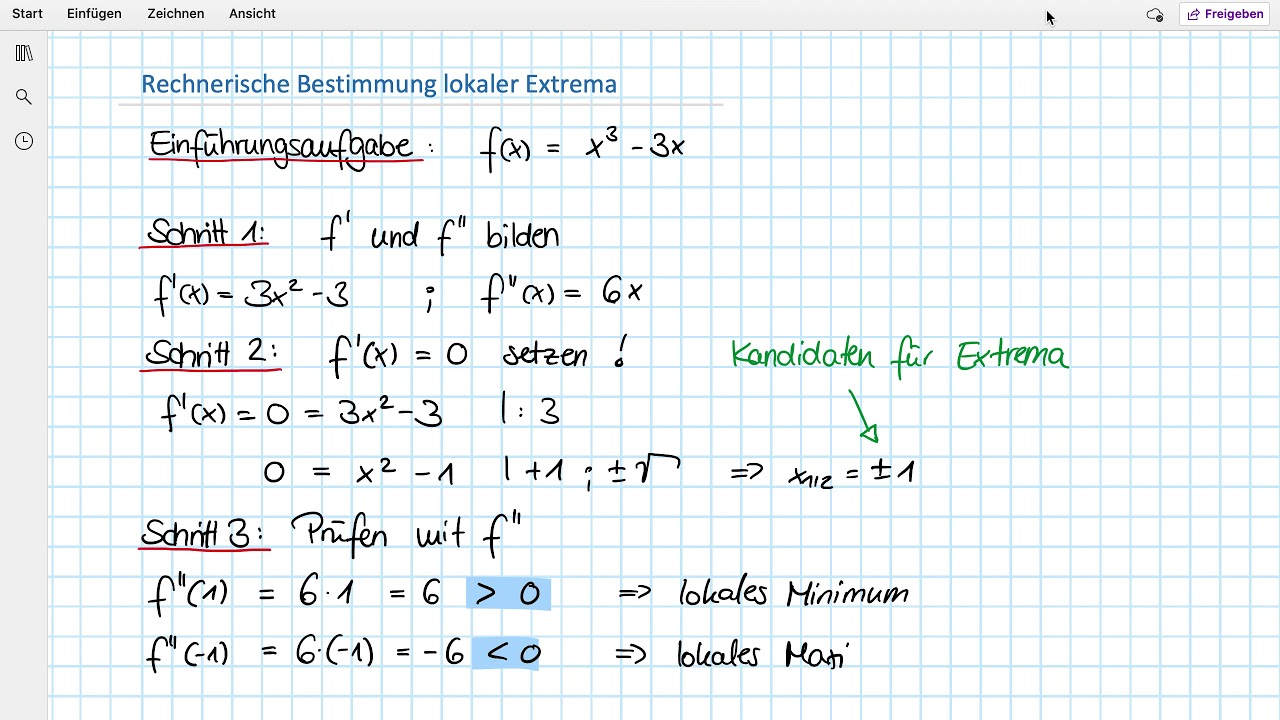 Start Einfügen Zeichnen Ansicht Freigeben
Rechnerische Bestimmung lokaler Extrema
Einführungsaufgabe: f(x) = x³ - 3x
Schritt 1: f' und f'' bilden
f'(x) = 3x² - 3 ; f''(x) = 6x
Schritt 2: f'(x) = 0 setzen !
Kandidaten für Extrema
f'(x) = 0 = 3x² - 3 | : 3
0 = x² - 1 | +1 ; ±√ => x₁/₂ = ±1
Schritt 3: Prüfen mit f''
f''(1) = 6·1 = 6 > 0 => lokales Minimum
f''(-1) = 6·(-1) = -6 < 0 => lokales Maxi